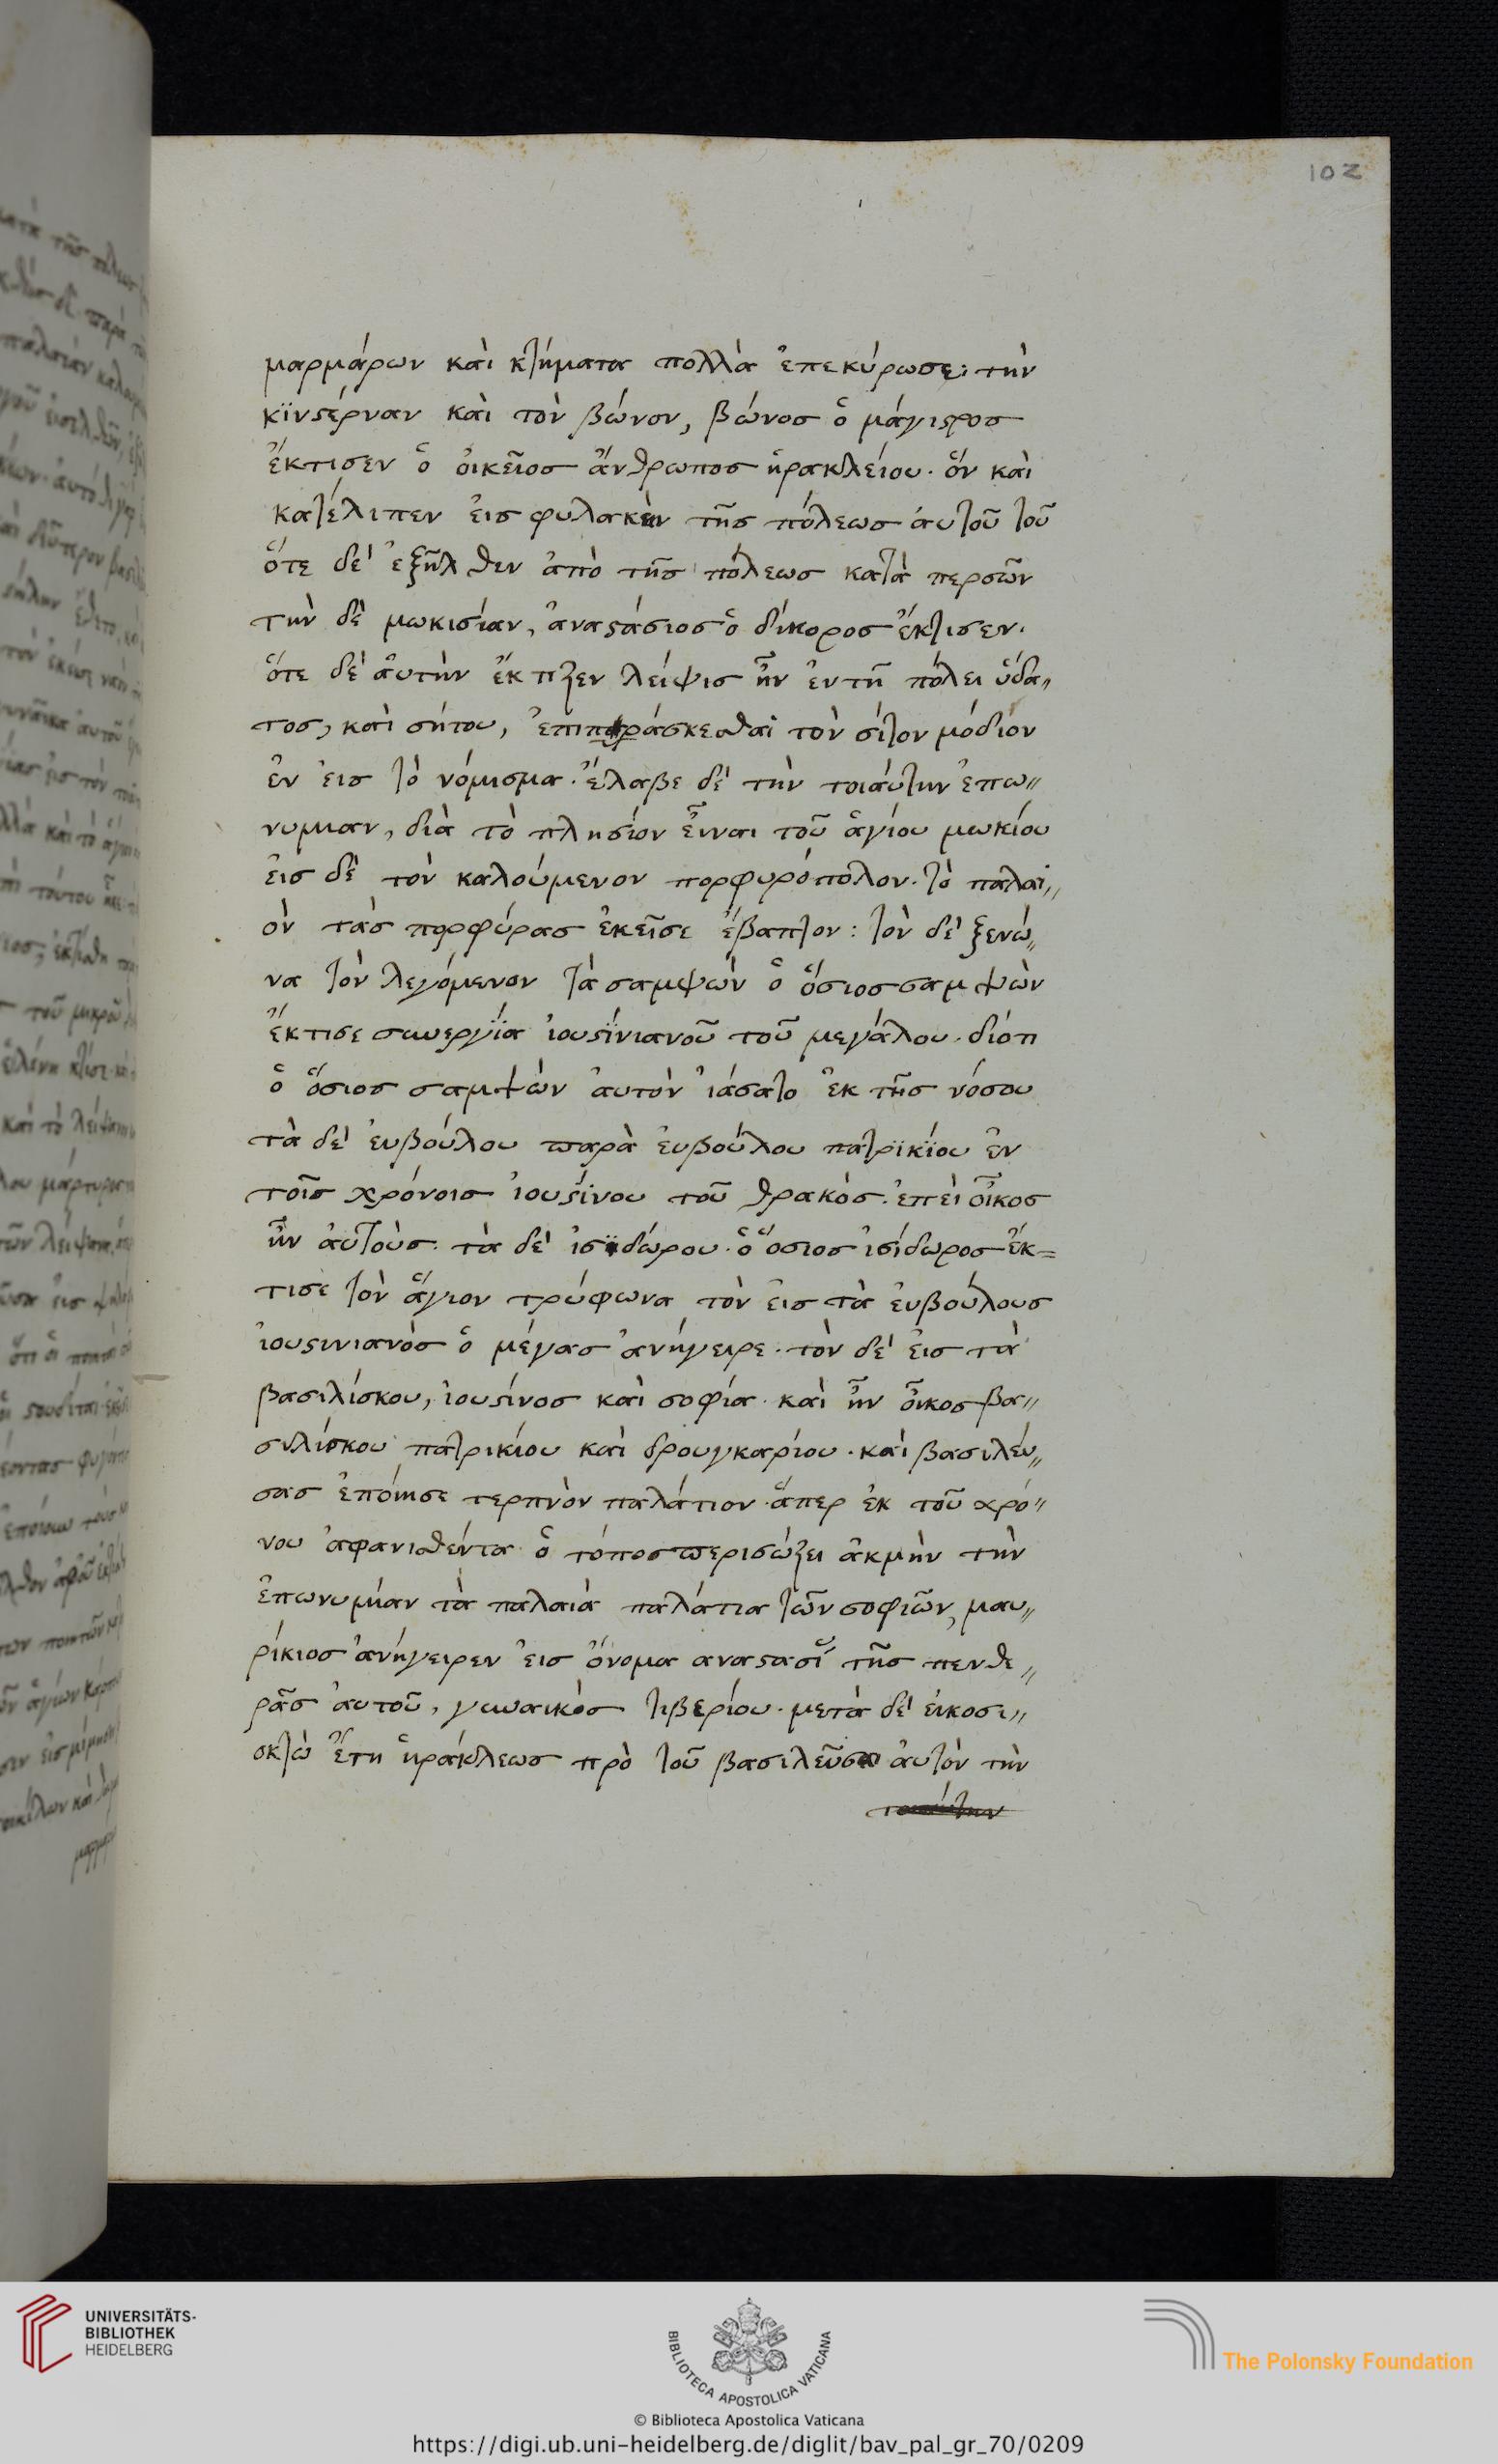 102
μαρμάρων καὶ κτήματα πολλὰ ἐπεκύρωσε· τὴν
κϊνστέρναν καὶ τὸν βώνον, βώνοσ ὁ μάγιστροσ
ἔκτισεν ὁ οἰκεῖοσ ἄνθρωποσ ἡρακλείου. ὅν καὶ
κατέλιπεν εἰσ φυλακὴν τῆσ πόλεωσ αὐτοῦ τοῦ
ὅτε δὲ ἐξῆλθεν ἀπὸ τῆσ πόλεωσ κατὰ περσῶν
τὴν δὲ μωκισίαν, ἀναστάσιοσ ὁ δίκοροσ ἔκτισεν.
ὅτε δὲ αὐτὴν ἔκτιζεν λείψισ ἦν ἐν τῇ πόλει ὕδα〃
τοσ, καὶ σήτου, ἐπιπράσκεσθαι τὸν σίτον μόδιον
ἐν εἰσ τὸ νόμισμα. ἔλαβε δὲ τὴν τοιαύτην ἐπω〃
νυμιαν, διὰ τὸ πλησίον εἶναι τοῦ ἁγίου μωκίου
εἰσ δὲ τὸν καλούμενον πορφυρόπολον. τὸ παλαι〃
ὸν τὰσ πορφύρασ ἐκεῖσε ἔβαπτον: τὸν δὲ ξενώ〃
να τὸν λεγόμενον τὰ σαμψὼν ὁ ὅσιοσ σαμψὼν
ἔκτισε συνεργΐα ἰουστϊνιανοῦ τοῦ μεγάλου. διότι
ὁ ὅσιοσ σαμψὼν αὐτὸν ἰάσατο ἐκ τῆσ νόσου
τὰ δὲ εὐβούλου παρὰ εὐβούλου πατρϊκΐου ἐν
τοῖσ χρόνοισ ἰουστΐνου τοῦ θρακόσ. ἐπεὶ οἶκοσ
ἦν αὐτοὺσ. τὰ δὲ ἰσιδώρου. ὁ ὅσιοσ ἰσίδωροσ ἔκ=
τισε τὸν ἅγιον τρύφωνα τὸν εἰσ τὰ εὐβούλουσ
ἰουστινιανὸσ ὁ μέγασ ἀνήγειρε. τὸν δὲ εἰσ τὰ
βασιλίσκου, ἰουστίνοσ καὶ σοφία. καὶ ἦν οἶκοσ βα〃
σιλίσκου πατρικίου καὶ δρουγκαρίου. καὶ βασιλεύ〃
σασ ἐποίησε τερπνὸν παλάτιον. ἅπερ ἐκ τοῦ χρό〃
νου ἀφανισθέντα ὁ τόποσ περισώζει ἀκμὴν τὴν
ἐπωνυμίαν τὰ παλαιὰ παλάτια τῶν σοφιῶν, μαυ〃
ρίκιοσ ἀνήγειρεν εἰσ ὄνομα τῆσ πενθε〃
ρᾶσ αὐτοῦ, γυναικὸσ τιβερίου. μετὰ δὲ εἰκοσι〃
οκτὼ ἔτη ἡράκλεωσ πρὸ τοῦ βασιλεῦσαι αὐτὸν τὴν
τοιαύτην
UNIVERSITÄTS-
BIBLIOTHEK
HEIDELBERG
BIBLIOTECA APOSTOLICA VATICANA
The Polonsky Foundation
© Biblioteca Apostolica Vaticana
https://digi.ub.uni-heidelberg.de/diglit/bav_pal_gr_70/0209